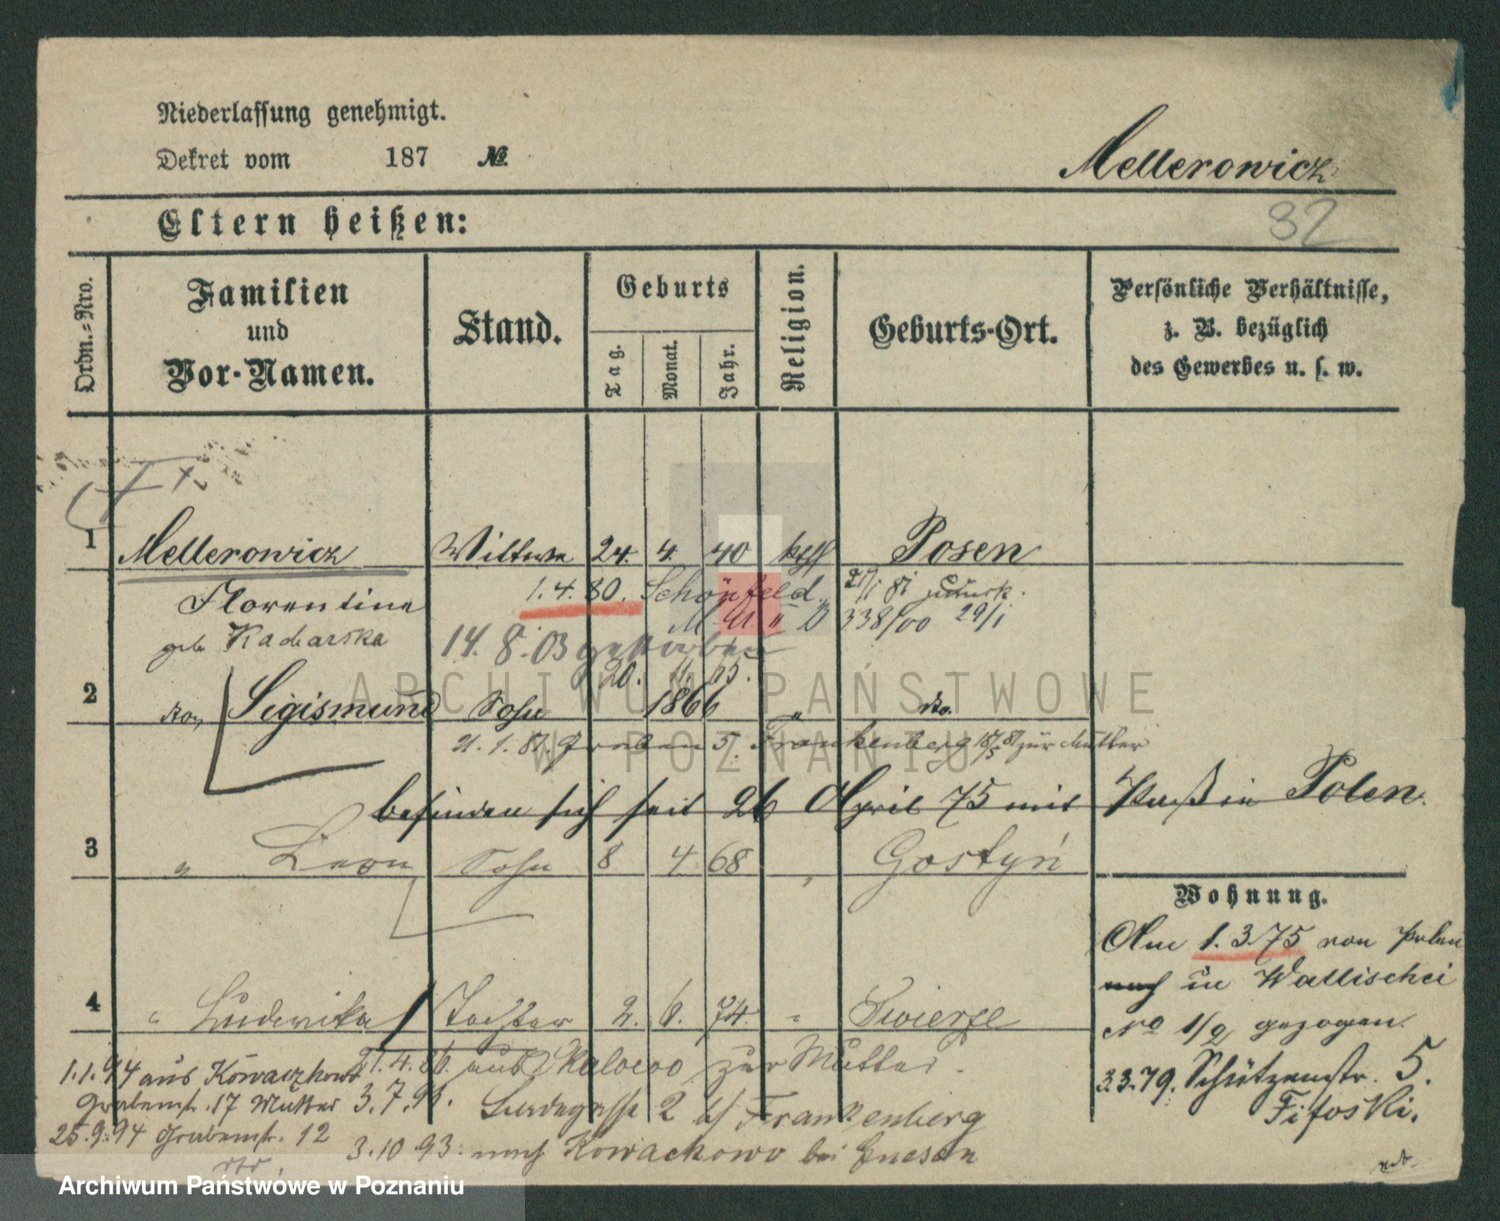 Niederlassung genehmigt.
Dekret vom 187 №
Mellerowicz
32
Eltern heißen:
Ordn.-Nro.
Familien
und
Vor-Namen.
Stand.
Geburts
Tag.
Monat.
Jahr.
Religion.
Geburts-Ort.
Persönliche Verhältnisse,
z. B. bezüglich
des Gewerbes u. s. w.
1 Mellerowicz Wittwe 24. 4. 40 kath Posen
Florentine 1.4.80. Schönfeld 338/00 29/1
geb 14. 8. 03 gestorben
20. 11. 65.
2 do, Sigismund Sohn 1866 " do.
21. 1. 81. Graben 5. Frankenberg zur Mutter
befinden sich seit 26 April 75 mit Paß in Polen.
3 " Leon Sohn 8 4 68 Gostyń
Wohnung.
Am 1.3.75 von Polen
nach in Wallischei
No 1/2 gezogen.
4 " Ludwika Tochter 2. 6. 74. " Swierze
zur Mutter.
3.3.79. Schützenstr. 5.
1.1.94 aus Kowaczkowo
Grabenstr. 17 Mutter 3.7.91. 2 b/ Frankenberg
25.9.94 Grabenstr. 12
3.10.93. nach Kowachowo bei Gnesen
ARCHIWUM PAŃSTWOWE
W POZNANIU
Archiwum Państwowe w Poznaniu